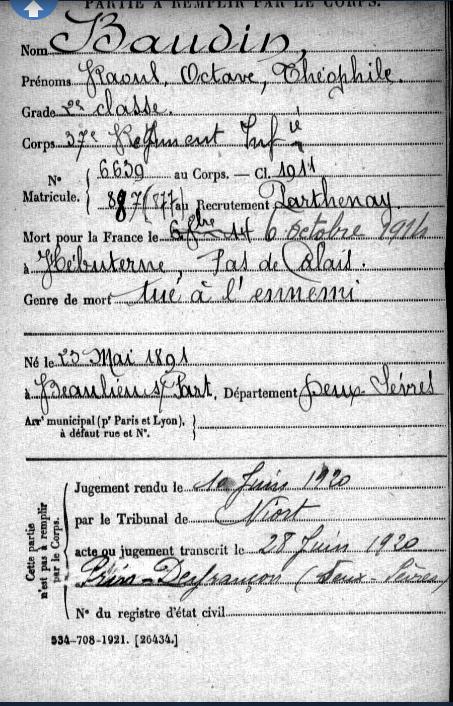 PARTIE À REMPLIR PAR LE CORPS.
Nom Baudin,
Prénoms Raoul, Octave, Théophile.
Grade 2e classe.
Corps 37e Régiment Infie
N° Matricule. { 6639 au Corps. — Cl. 1911
887 (877) au Recrutement Parthenay
Mort pour la France le 6 8bre 14 6 octobre 1914
à Hébuterne, Pas de Calais.
Genre de mort tué à l'ennemi
Né le 23 Mai 1891
à Beaulieu s/ Part. Département Deux Sèvres
Arrt municipal (pr Paris et Lyon), à défaut rue et N°. }
Cette partie n'est pas à remplir par le Corps.
Jugement rendu le 10 Juin 1920
par le Tribunal de Niort
acte ou jugement transcrit le 28 Juin 1920
Prin-Deyrançon (Deux-Sèvres)
N° du registre d'état civil
534-708-1921. [26434.]